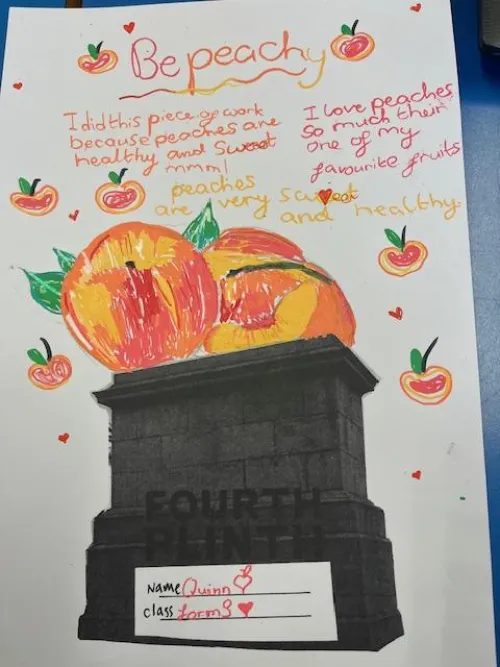 Be peachy
I did this piece of work
because peaches are
healthy and sweet
mmm!
I love peaches
so much their
one of my
favourite fruits
peaches
are very sweet
and healthy.
FOURTH
PLINTH
Name Quinn
Class form 3